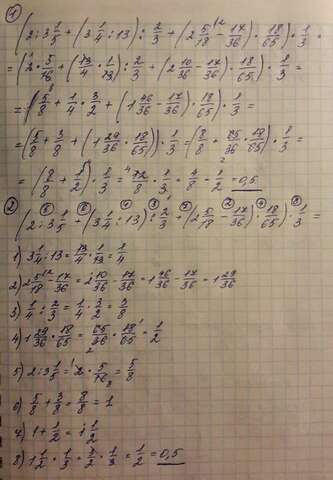 ①
(2:3 1/5 + (3 1/4 : 13) : 2/3 + (2 5/18 - 17/36) · 18/65) · 1/3 =
= (2 · 5/16 + (13/4 · 1/13) : 2/3 + (2 10/36 - 17/36) · 18/65) · 1/3 =
= (5/8 + 1/4 · 3/2 + (1 46/36 - 17/36) · 18/65) · 1/3 =
= (5/8 + 3/8 + (1 29/36 · 18/65)) · 1/3 = (8/8 + 65/36 · 18/65) · 1/3 =
= (8/8 + 1/2) · 1/3 = 12/8 · 1/3 = 4/8 = 1/2 = 0,5
② (2:3 1/5 + (3 1/4 : 13) : 2/3 + (2 5/18 - 17/36) · 18/65) · 1/3 =
1) 3 1/4 : 13 = 13/4 · 1/13 = 1/4
2) 2 5/18 - 17/36 = 2 10/36 - 17/36 = 1 46/36 - 17/36 = 1 29/36
3) 1/4 : 2/3 = 1/4 · 3/2 = 3/8
4) 1 29/36 · 18/65 = 65/36 · 18/65 = 1/2
5) 2:3 1/5 = 2 · 5/16 = 5/8
6) 5/8 + 3/8 = 8/8 = 1
7) 1 + 1/2 = 1 1/2
8) 1 1/2 · 1/3 = 3/2 · 1/3 = 1/2 = 0,5